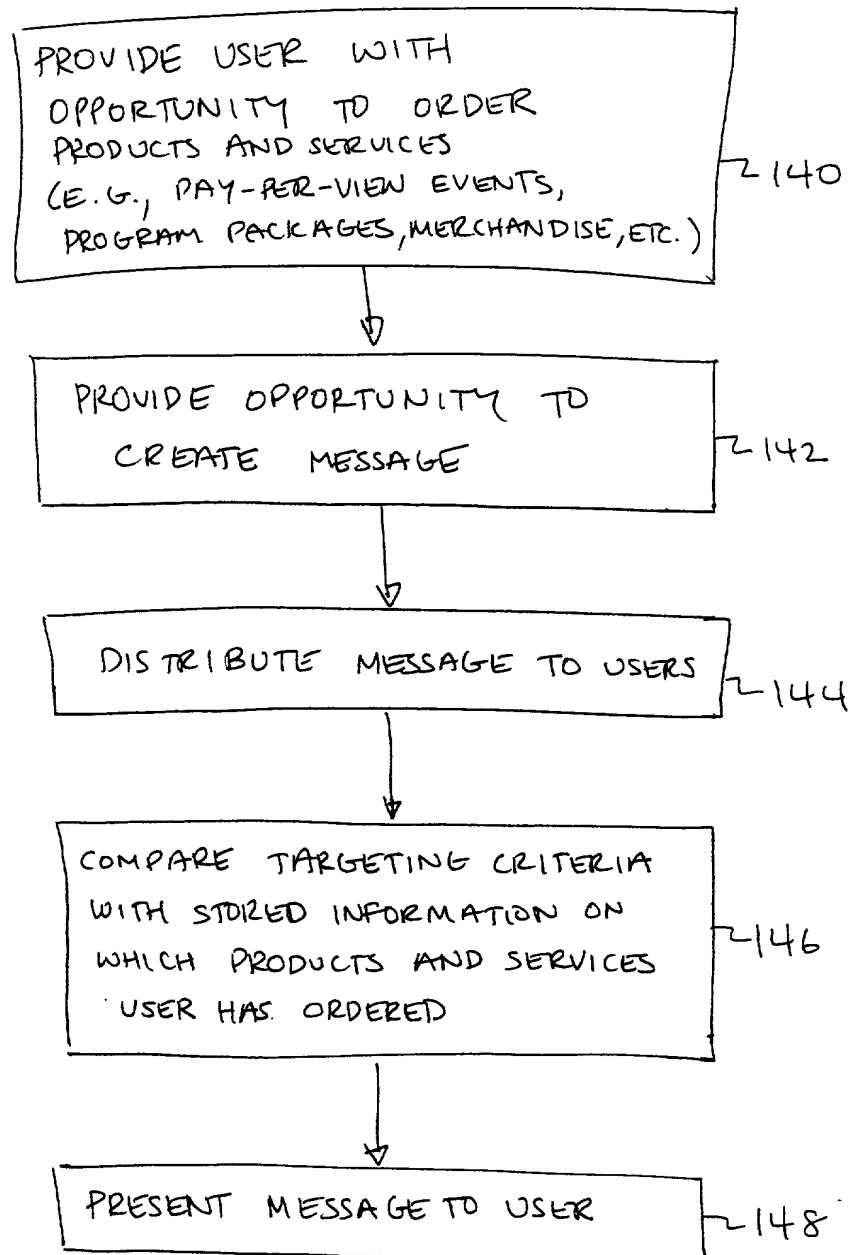 PROVIDE USER WITH
OPPORTUNITY TO ORDER
PRODUCTS AND SERVICES
(E.G., PAY-PER-VIEW EVENTS,
PROGRAM PACKAGES, MERCHANDISE, ETC.)
140
PROVIDE OPPORTUNITY TO
CREATE MESSAGE
142
DISTRIBUTE MESSAGE TO USERS
144
COMPARE TARGETING CRITERIA
WITH STORED INFORMATION ON
WHICH PRODUCTS AND SERVICES
USER HAS ORDERED
146
PRESENT MESSAGE TO USER
148